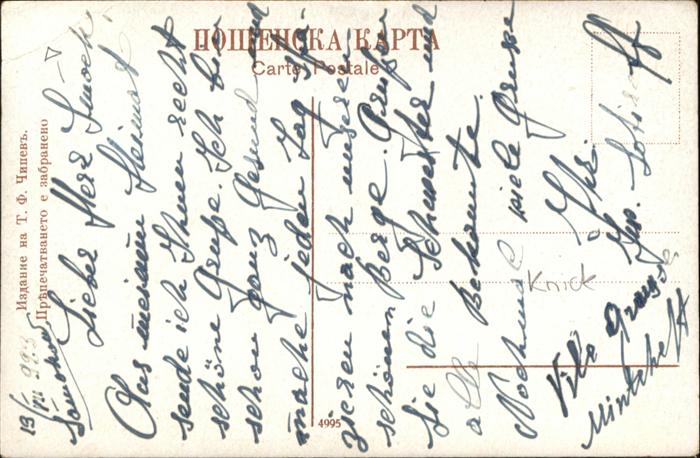 ПОЩЕНСКА КАРТА
Carte Postale
Издание на Т. Ф. Чипевъ.
Прѣпечатването е забранено
4995
19/VII 923
Lieber Herr
Aus meiner Heimat
sende ich Ihnen recht
schöne Grüße. Ich bin
schon ganz gesund und
mache jeden Tag Spa-
zieren nach unseren
schönen Berge. Grüßen
Sie die Schwester und
alle Bekannte.
Nochmal viele Grüße
Ihr
Knick